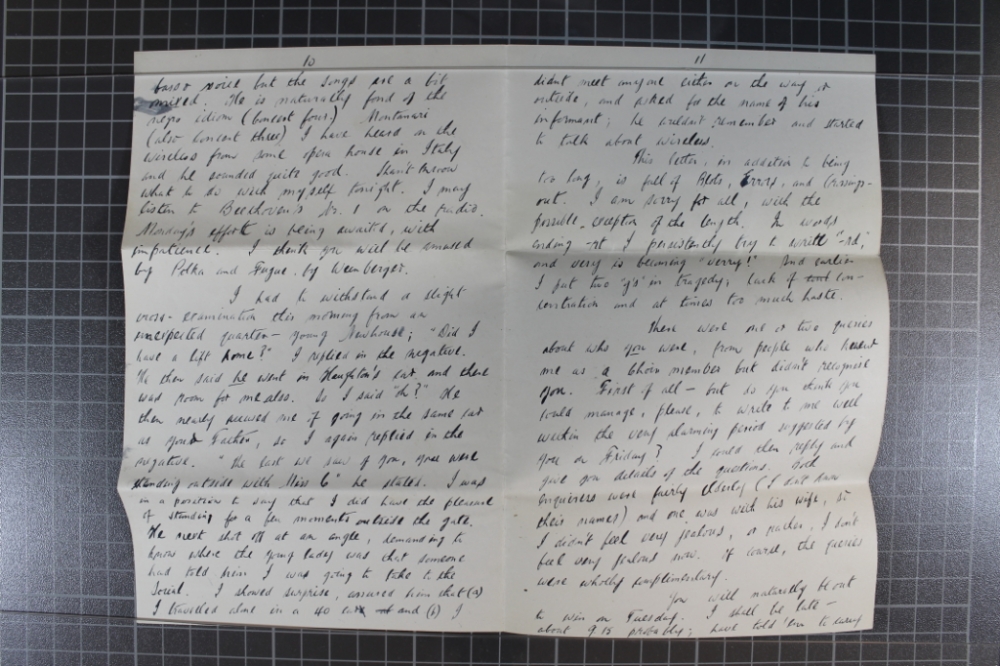 10
basso voice but the songs are a bit
mixed. He is naturally fond of the
negro idiom (Concert four.) Montanari
(also Concert three) I have heard on the
wireless from some opera house in Italy
and he sounded quite good. Shan't know
what to do with myself tonight. I may
listen to Beethoven's No. 1 on the Radio.
Monday's effort is being awaited, with
impatience. I think you will be amused
by Polka and Fugue, by Weinberger.
I had to withstand a slight
cross-examination this morning from an
unexpected quarter - young Newhouse; "Did I
have a lift home?" I replied in the negative.
He then said he went in Haughton's car and there
was room for me also. So I said "oh?" He
then nearly accused me of going in the same car
as your Father, so I again replied in the
negative. "The last we saw of you, you were
standing outside with Miss C" he states. I was
in a position to say that I did have the pleasure
of standing for a few moments outside the gate.
He next shot off at an angle, demanding to
know where the young lady was that someone
had told him I was going to take to the
Social. I showed surprise, assured him that (a)
I travelled alone in a 40 and (b) I
11
didn't meet anyone either on the way or
outside, and asked for the name of his
informant; he couldn't remember and started
to talk about wireless.
This letter, in addition to being
too long, is full of Blots, Errors, and Crossings-
out. I am sorry for all, with the
possible exception of the length. In words
ending -rt I persistently try to write "-rd,"
and very is becoming "verry!" And earlier
I put two 'g's' in tragedy; lack of con-
centration and at times too much haste.
There were one or two queries
about who you were, from people who
me as a Choir member but didn't recognise
you. First of all - but do you think you
could manage, please, to write to me well
within the very alarming period suggested by
you on Friday? I could then reply and
give you details of the questions. Both
enquirers were fairly elderly (I don't know
their names) and one was with his wife, so
I didn't feel very jealous, or rather, I don't
feel very jealous now. Of course, the queries
were wholly complimentary.
You will naturally be out
to win on Tuesday. I shall be late -
about 9.15 probably; have told 'em to carry